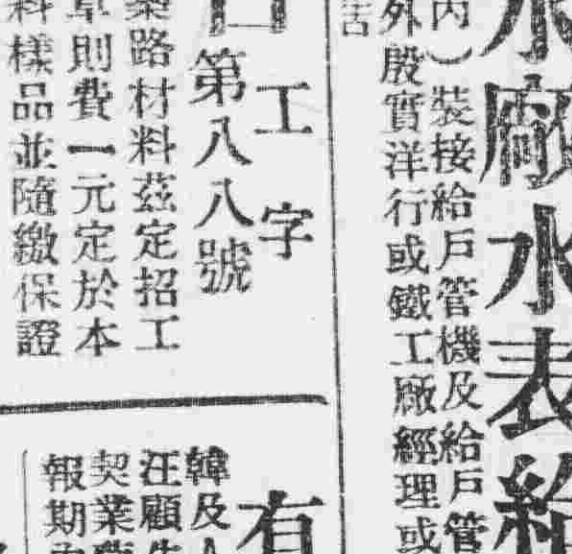 水廠水表給
內）裝接給戶管機及給戶管
外殷實洋行或鐵工廠經理或
告
工字
第八八號
築路材料茲定招工
章則費一元定於本
料樣品並隨繳保證
有
韓及人
汪顧先
契業
報期